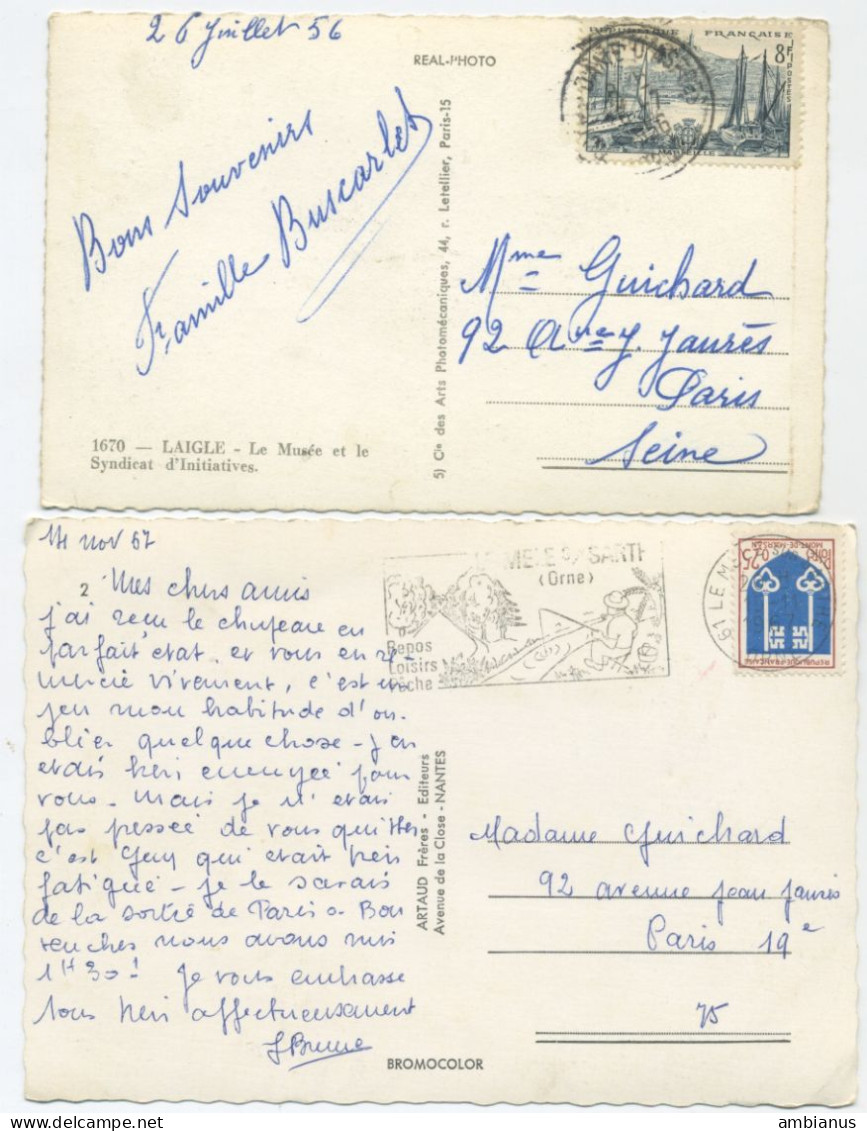 26 Juillet 56
REAL-PHOTO
FRANÇAISE
8F
POSTES
Bons Souvenirs
Famille Buscarlet
5) Cie des Arts Photomécaniques, 44, r. Letellier, Paris-15
Mme Guichard
92 Ave J. Jaurès
Paris
Seine
1670 — LAIGLE - Le Musée et le
Syndicat d'Initiatives.
14 nov 67
2
Mes chers amis
j'ai reçu le chapeau en
parfait état et vous en re-
mercie vivement, c'est un
peu mon habitude d'ou-
blier quelque chose - j'en
étais très ennuyée pour
vous - Mais je n'étais
pas pressée de vous quitter
c'est Guy qui était très
fatigué - je le savais
de la sortie de Paris à Bon
nous avons mis
1H30! Je vous embrasse
tous très affectueusement
LE MELE S/ SARTH
(Orne)
Repos
Loisirs
Pêche
61 LE M
0,25
MONT-DE-MARSAN
REPUBLIQUE FRANÇAISE
ARTAUD Frères - Editeurs
Avenue de la Close - NANTES
Madame Guichard
92 avenue Jean Jaurès
Paris 19e
75
BROMOCOLOR
ambianus